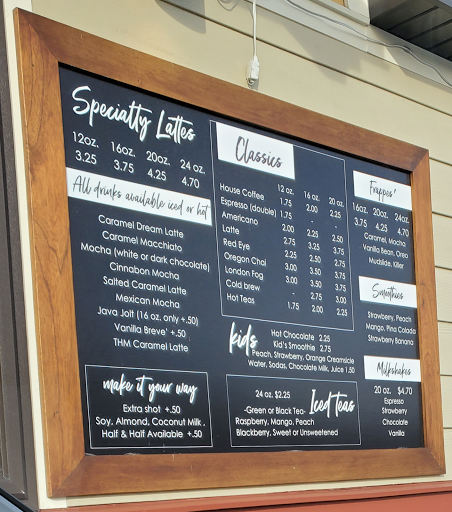 Specialty Lattes
12oz. 16oz. 20oz. 24 oz.
3.25 3.75 4.25 4.70
All drinks available iced or hot
Caramel Dream Latte
Caramel Macchiato
Mocha (white or dark chocolate)
Cinnabon Mocha
Salted Caramel Latte
Mexican Mocha
Java Jolt (16 oz. only +.50)
Vanilla Breve' +.50
THM Caramel Latte
make it your way
Extra shot +.50
Soy, Almond, Coconut Milk .
Half & Half Available +.50
Classics
12 oz. 16 oz. 20 oz.
House Coffee 1.75 2.00 2.25
Espresso (double) 1.75 - -
Americano 2.00 2.25 2.50
Latte 2.75 3.25 3.75
Red Eye 2.25 2.50 2.75
Oregon Chai 3.00 3.50 3.75
London Fog 3.00 3.50 3.75
Cold brew 2.75 3.00
Hot Teas 1.75 2.00 2.25
kids
Hot Chocolate 2.25
Kid's Smoothie 2.75
Peach, Strawberry, Orange Creamsicle
Water, Sodas, Chocolate Milk, Juice 1.50
24 oz. $2.25
Iced Teas
-Green or Black Tea-
Raspberry, Mango, Peach
Blackberry, Sweet or Unsweetened
Frappes'
16oz. 20oz. 24oz.
3.75 4.25 4.70
Caramel, Mocha
Vanilla Bean, Oreo
Mudslide, Killer
Smoothies
Strawberry, Peach
Mango, Pina Colada
Strawberry Banana
Milkshakes
20 oz. $4.70
Espresso
Strawberry
Chocolate
Vanilla